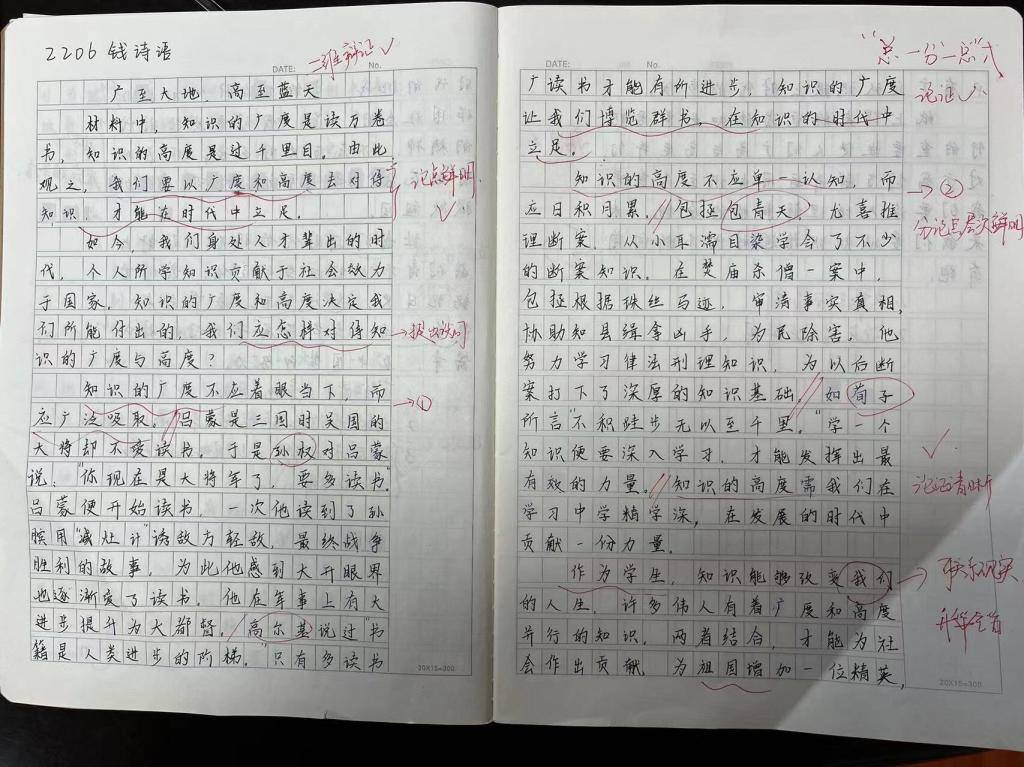 2206 钱诗语
二维辩证 ✓
DATE: No.
广至大地,高至蓝天
材料中,知识的广度是读万卷
书,知识的高度是过千里目。由此
观之,我们要以广度和高度去对待
知识,才能在时代中立足。
论点鲜明
如今,我们身处人才辈出的时
代,个人所学知识贡献于社会效力
于国家。知识的广度和高度决定我
们所能付出的,我们应怎样对待知
→提出设问
识的广度与高度?
知识的广度不应着眼当下,而
→①
应广泛吸取。吕蒙是三国时吴国的
大将却不爱读书。于是孙权对吕蒙
说:“你现在是大将军了,要多读书。”
吕蒙便开始读书,一次他读到了孙
膑用“减灶计”诱敌方轻敌,最终战争
胜利的故事,为此他感到大开眼界
也逐渐爱了读书。他在军事上有大
进步提升为大都督。高尔基说过“书
籍是人类进步的阶梯。”只有多读书
20X15=300
“总—分—总”式
DATE: No.
广读书才能有所进步。知识的广度
论证 ✓
让我们博览群书,在知识的时代中
立足。
知识的高度不应单一认知,而
→②
应日积月累。包拯包青天,尤喜推
分论点层次鲜明
理断案,从小耳濡目染学会了不少
的断案知识。在焚庙杀僧一案中,
包拯根据珠丝马迹,审清事实真相,
协助知县缉拿凶手,为民除害。他
努力学习律法刑理知识,为以后断
案打下了深厚的知识基础。如荀子
所言“不积跬步无以至千里。”学一个
知识便要深入学才,才能发挥出最
有效的力量。知识的高度需我们在
论证清晰
学习中学精学深,在发展的时代中
贡献一份力量。
作为学生,知识能够改变我们
→联系现实
的人生,许多伟人有着广度和高度
升华全篇
并行的知识。两者结合,才能为社
会作出贡献,为祖国增加一位精英,
20X15=300